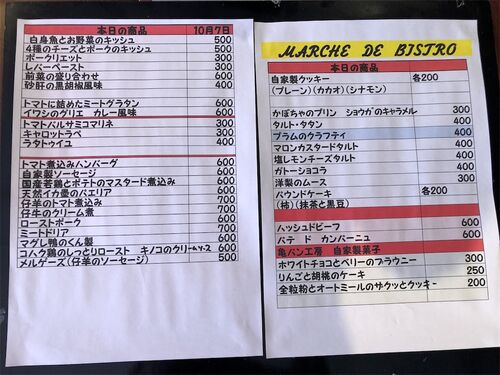 本日の商品 10月7日
白身魚とお野菜のキッシュ 500
4種のチーズとポークのキッシュ 500
ポークリエット 300
レバーペースト 300
前菜の盛り合わせ 600
砂肝の黒胡椒風味 400
トマトに詰めたミートグラタン 600
イワシのグリエ カレー風味 600
トマトバルサミコマリネ 300
キャロットラペ 300
ラタトゥイユ 400
トマト煮込みハンバーグ 600
自家製ソーセージ 600
国産若鶏とポテトのマスタード煮込み 600
天然イカ墨のパエリア 600
仔羊のトマト煮込み 700
仔牛のクリーム煮 700
ローストポーク 600
ミートドリア 600
マグレ鴨のくん製 600
コハク鶏のしっとりロースト キノコのクリームソース 600
メルゲーズ(仔羊のソーセージ) 500
MARCHE DE BISTRO
本日の商品
自家製クッキー 各200
(プレーン)(カカオ)(シナモン)
かぼちゃのプリン ショウガのキャラメル 300
タルト・タタン 400
プラムのクラフティ 400
マロンカスタードタルト 400
塩レモンチーズタルト 400
ガトーショコラ 400
洋梨のムース 300
パウンドケーキ 各200
(柿)(抹茶と黒豆)
ハッシュドビーフ 600
パテ ド カンパーニュ 600
亀パン工房 自家製菓子
ホワイトチョコとベリーのブラウニー 300
りんごと胡桃のケーキ 250
全粒粉とオートミールのザクッとクッキー 200